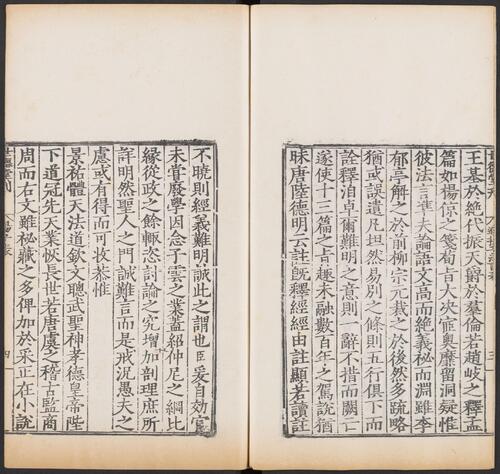 王基於絶代振天爵於羣倫若趙岐之釋孟
篇如楊倞之箋荀旨大夾寍奥靡留洞疑惟
彼法言準夫論語文高而絶義秘而淵雖李
郁亭解之於前柳宗元裁之於後然多疏略
猶或誤遺凡坦然易別之條則五行俱下而
詮釋洎卓爾難明之意則一辭不措而闕亡
遂使十三篇之旨趣未融數百年之駕說猶
昧唐陸德明云註旣釋經經由註顯若讀註
不曉則經義難明誠此之謂也臣爰自効官
未嘗廢學因念子雲之業蓋紹仲尼之綱比
緣從政之餘輙恣討論之究增加剖理庶所
詳明然聖人之門誠難言而是戒況愚夫之
慮或有得而可妆恭惟
景祐體天法道欽文聰武聖神孝德皇帝陛
下道冠先天業恢長世若唐虞之稽古監商
周而右文雖秘藏之多俾加於采正在小說
四